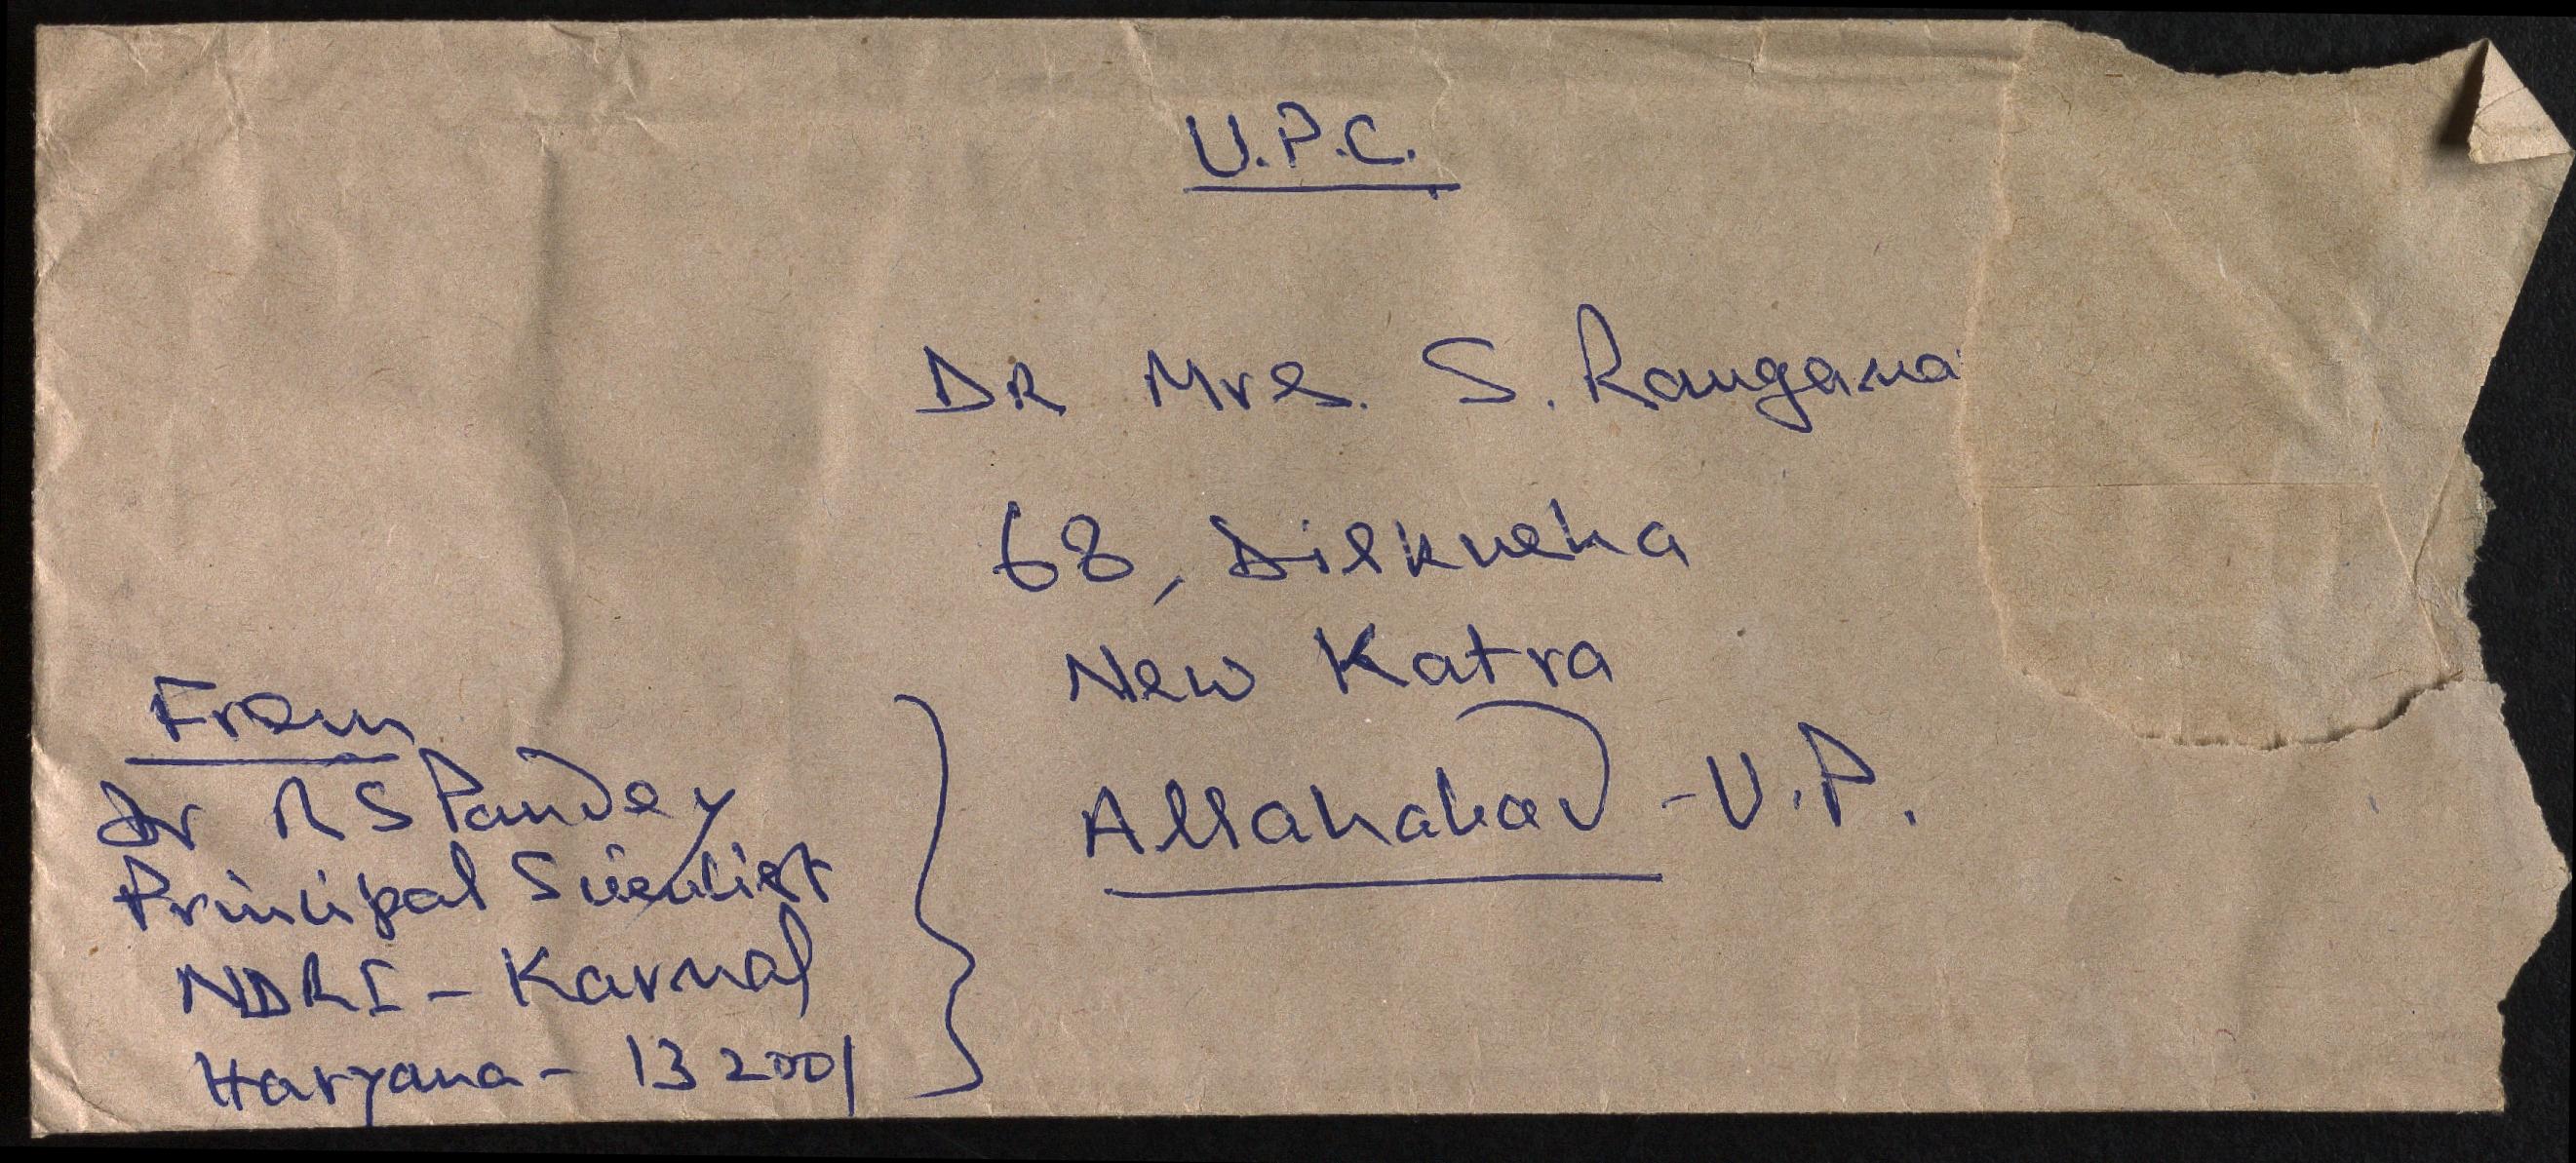 U.P.C.
DR Mrs. S. Rangana
68, Dilkusha
New Katra
Allahabad - U.P.
From
Dr R S Pandey
Principal Scientist
NDRI - Karnal
Haryana - 132001